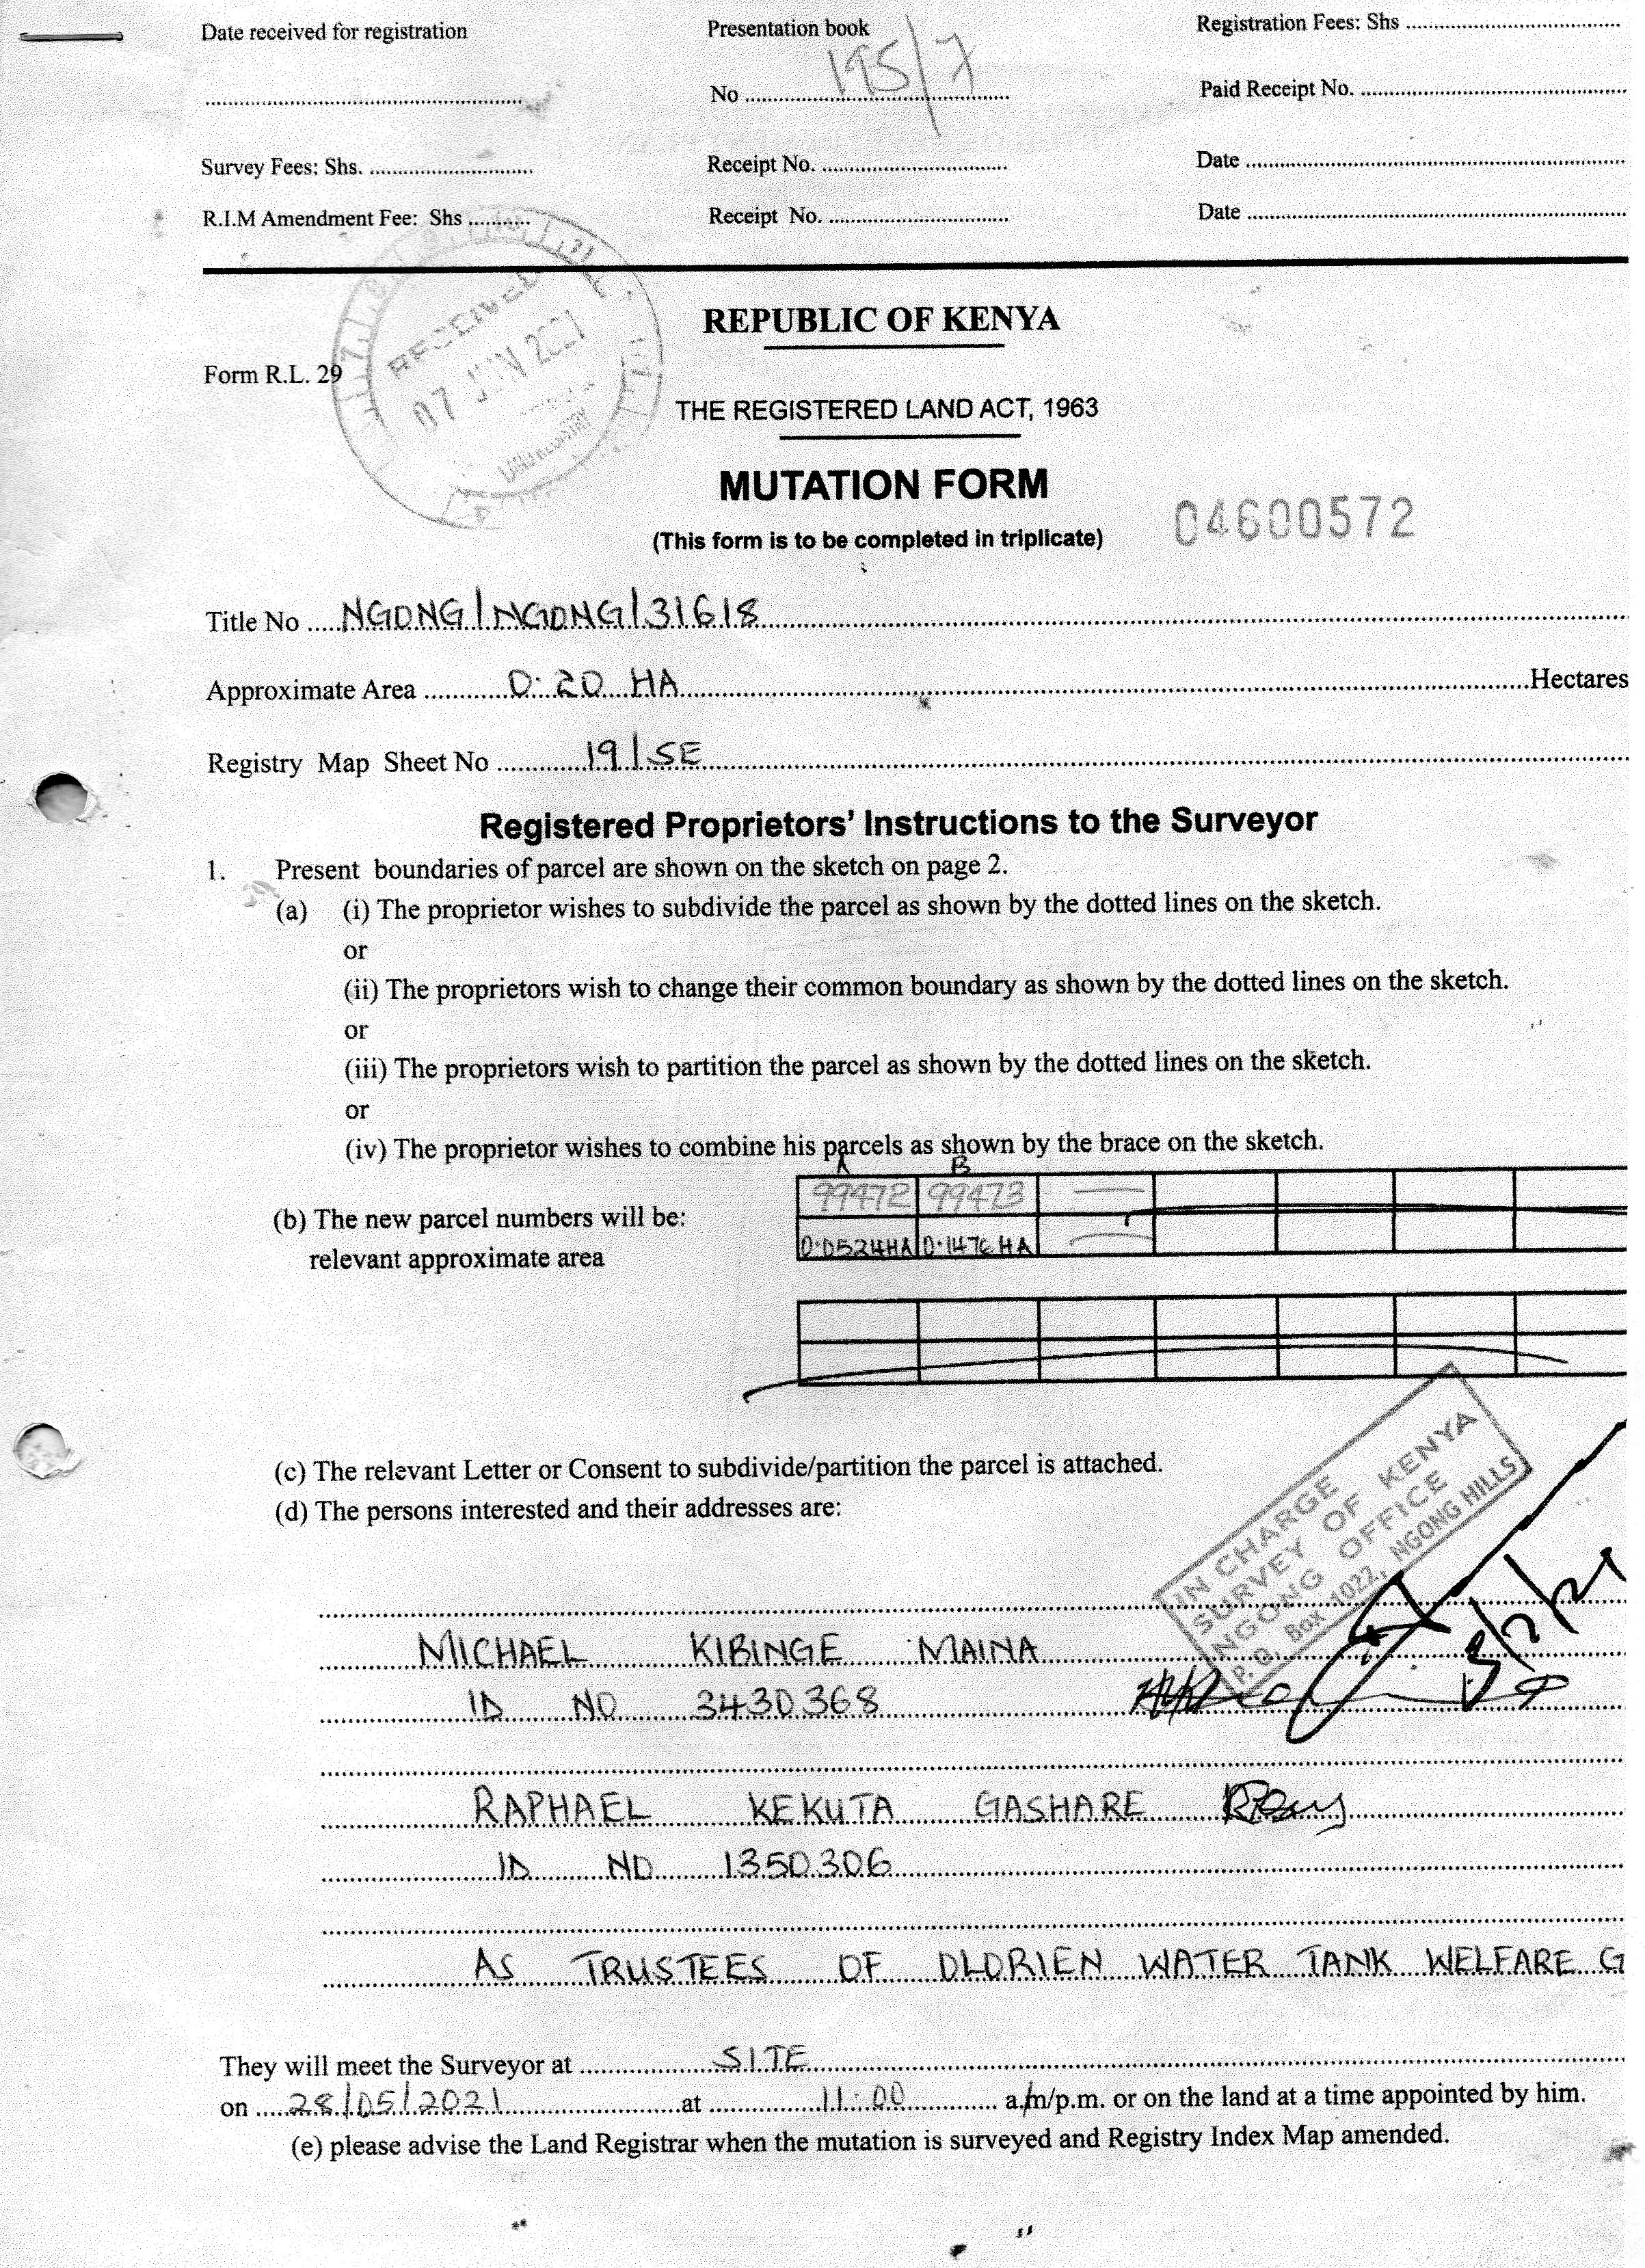 Date received for registration Presentation book Registration Fees: Shs
No 195/7 Paid Receipt No.
Survey Fees: Shs. Receipt No. Date
R.I.M Amendment Fee: Shs Receipt No. Date
RECEIVED
07 JUN 2021
LAND REGISTRY
REPUBLIC OF KENYA
Form R.L. 29
THE REGISTERED LAND ACT, 1963
MUTATION FORM
04600572
(This form is to be completed in triplicate)
Title No NGONG/NGONG/31618
Approximate Area 0.20 HA Hectares
Registry Map Sheet No 19/SE
Registered Proprietors' Instructions to the Surveyor
1. Present boundaries of parcel are shown on the sketch on page 2.
(a) (i) The proprietor wishes to subdivide the parcel as shown by the dotted lines on the sketch.
or
(ii) The proprietors wish to change their common boundary as shown by the dotted lines on the sketch.
or
(iii) The proprietors wish to partition the parcel as shown by the dotted lines on the sketch.
or
(iv) The proprietor wishes to combine his parcels as shown by the brace on the sketch.
A B
99472 99473
(b) The new parcel numbers will be:
0.0524HA 0.1476HA
relevant approximate area
(c) The relevant Letter or Consent to subdivide/partition the parcel is attached.
(d) The persons interested and their addresses are:
IN CHARGE
SURVEY OF KENYA
NGONG OFFICE
P. O. Box 1022, NGONG HILLS
MICHAEL KIBINGE MAINA
ID NO 3430368
RAPHAEL KEKUTA GASHARE
ID NO 1350306
AS TRUSTEES OF OLORIEN WATER TANK WELFARE G
They will meet the Surveyor at SITE
on 28/05/2021 at 11:00 a.m/p.m. or on the land at a time appointed by him.
(e) please advise the Land Registrar when the mutation is surveyed and Registry Index Map amended.